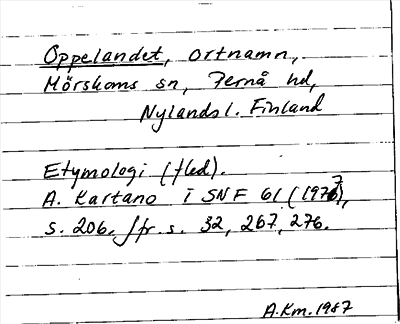 Oppelandet, ortnamn,
Mörskoms sn, Pernå hd,
Nylandsl. Finland
Etymologi (fled).
A. Kartano i SNF 61 (1977),
s. 206. Jfr s. 32, 267, 276.
A.Km. 1987